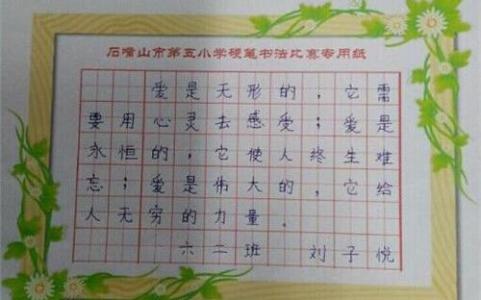 石嘴山市第五小学硬笔书法比赛专用纸
爱是无形的，它需
要用心灵去感受；爱是
永恒的，它使人终生难
忘；爱是伟大的，它给
人无穷的力量。
六二班 刘子悦